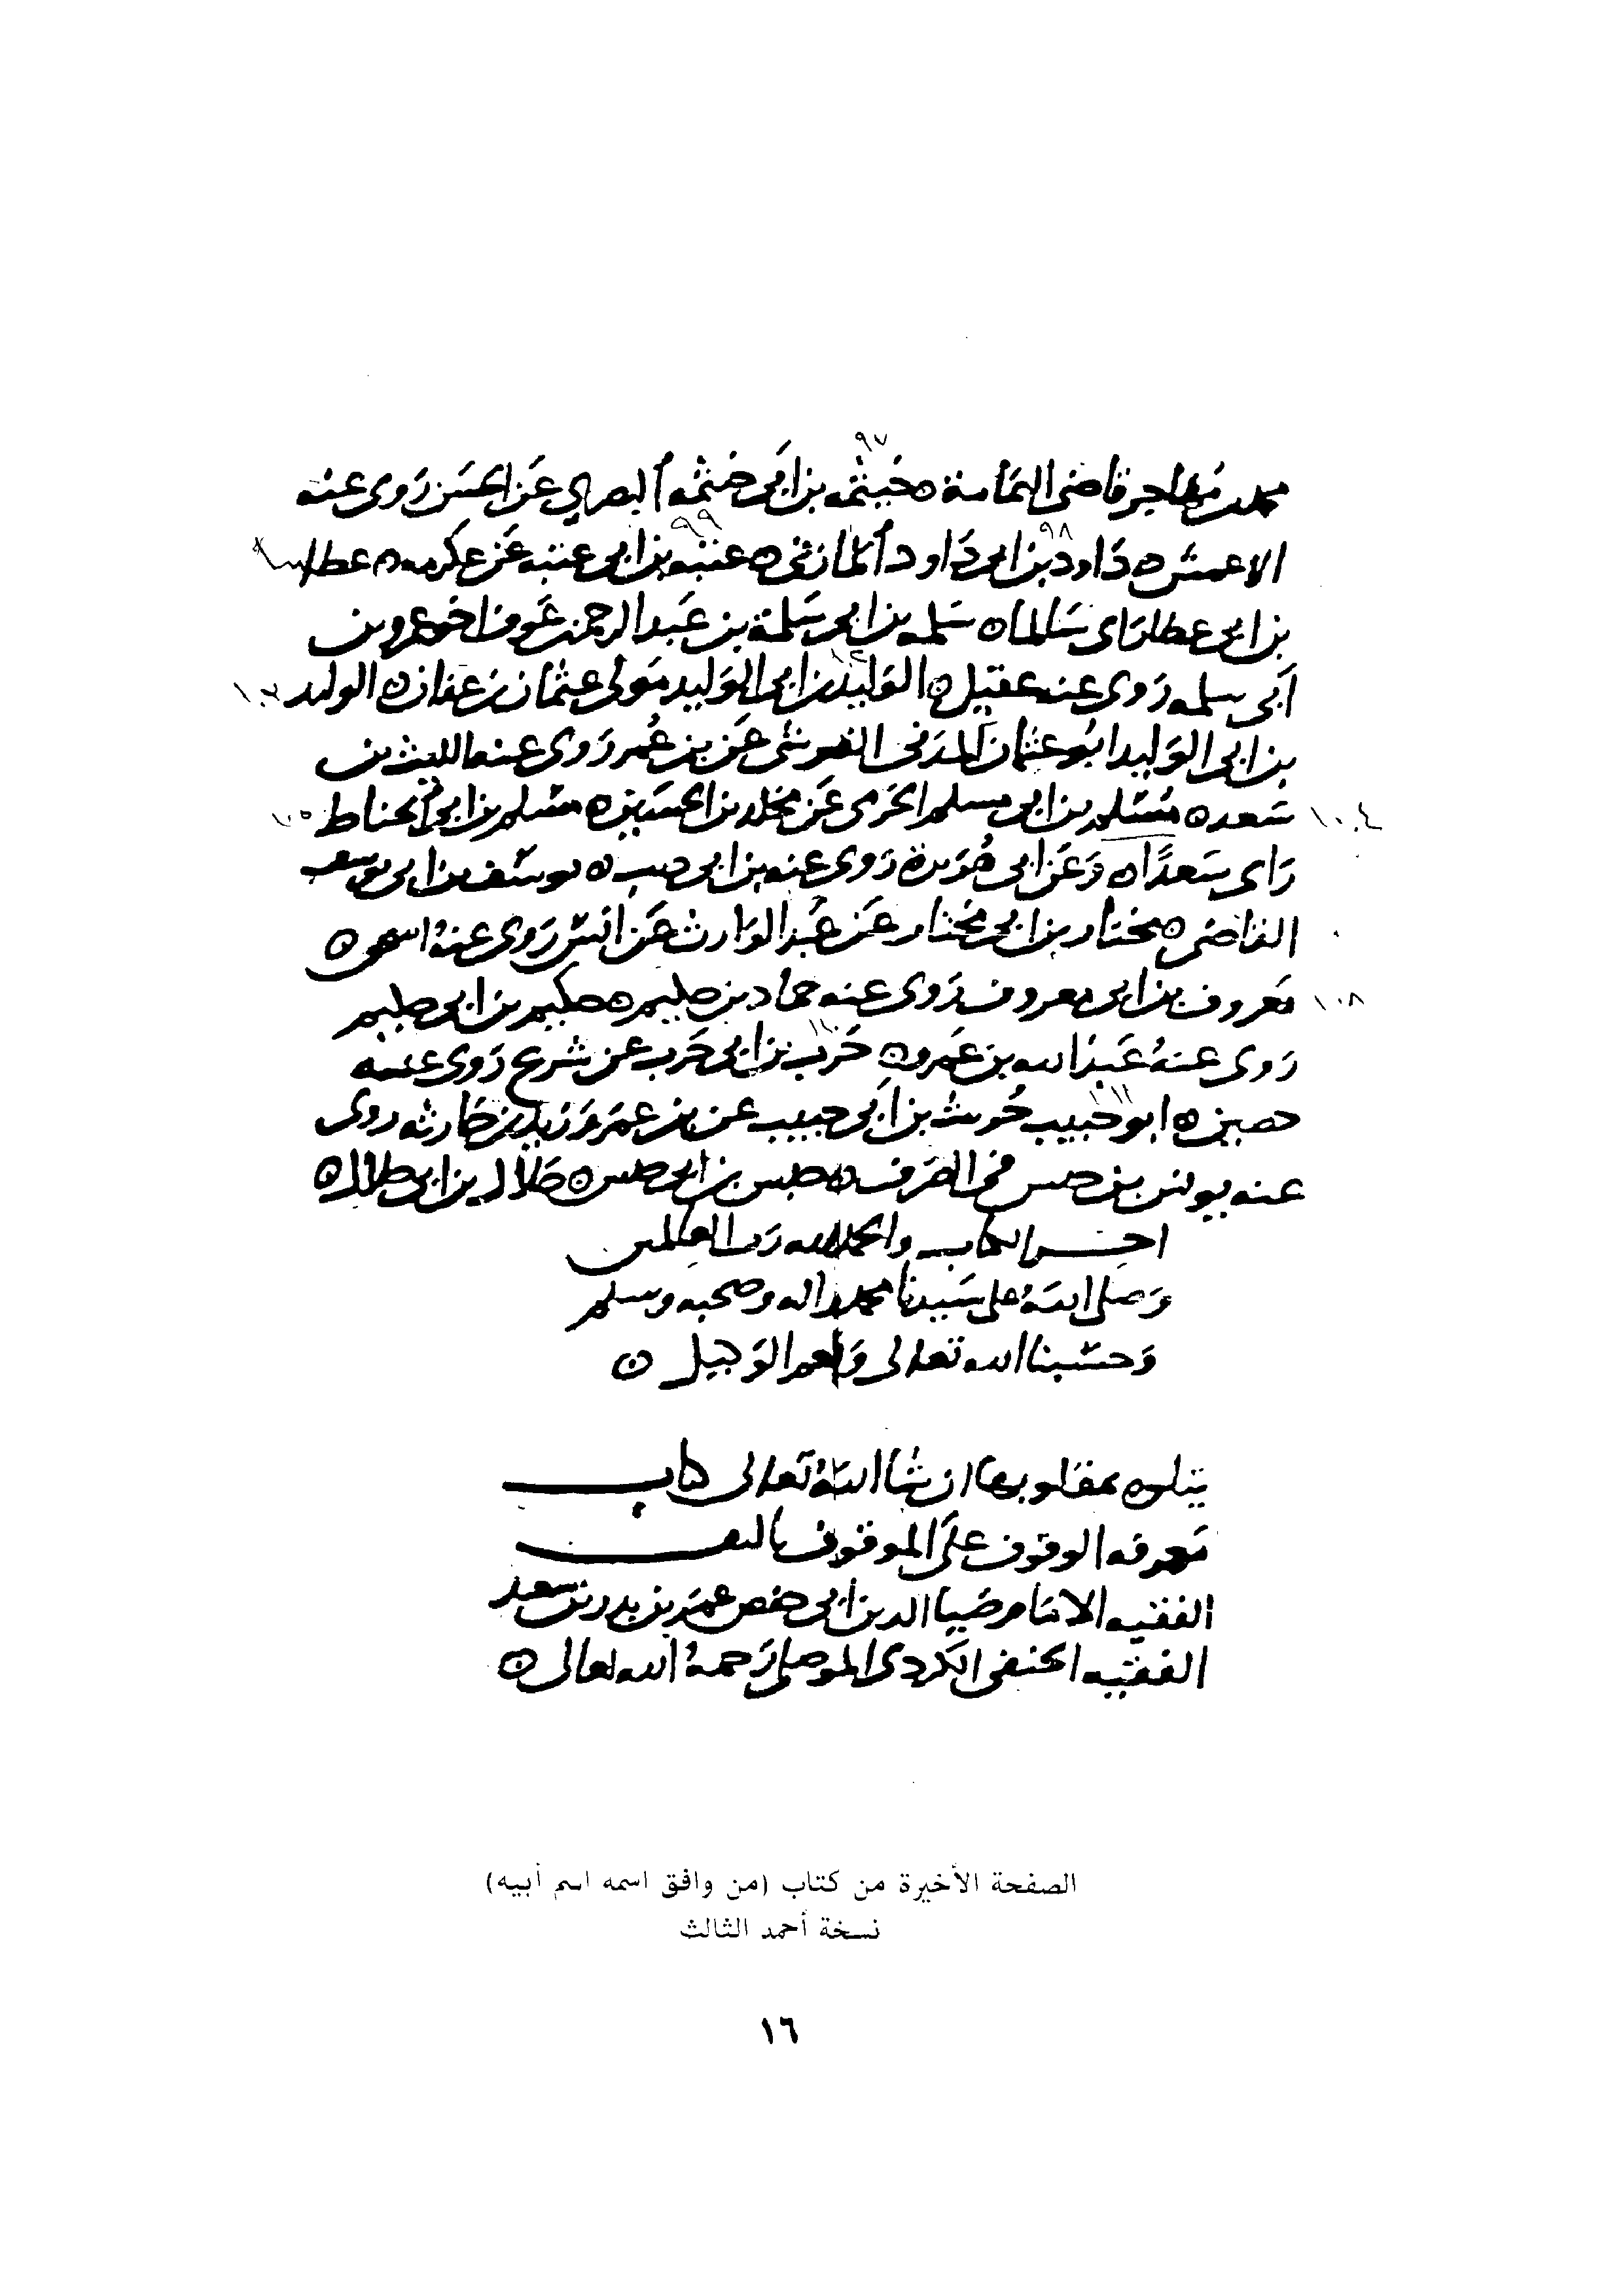 محمد بن مهاجر قاضى اليمامة ه خيثمه بن ابى خيثمه البصري عن الحسن روى عنه
٩٧
الاعمش ه داود بن ابى داود المازنى ه عتبه بن ابى عتبه عن عكرمه ه عطا
٩٨ ٩٩
بن ابى عطا راى سالما ه سلمه بن ابى سلمة بن عبد الرحمن بن عوف اخو عمرو بن
ابى سلمه روى عنه عقيل ه الوليد بن ابى الوليد مولى عثمان بن عفان ه الوليد
بن ابى الوليد ابو عثمان المدنى القرشى عن بن عمر روى عنه الليث بن
١٠٤ سعد ه مسلم بن ابى مسلم الجرمى عن مخلد بن الحسين ه مسلم بن ابى الخناط ١٠٥
راى سعدًا ه وعن ابى هريرة روى عنه بن ابى ه يوسف بن ابى يوسف
القاضى ه مختار بن ابى مختار عن عبد الوارث عن انس روى عنه ه
١٠٨ معروف بن ابى معروف روى عنه حماد بن ه حكيم بن ابى حكيم
روى عنه عبد الله بن عمرو ه حرب بن ابى حرب عن شريح روى عنه
حصين ه ابو حبيب بن ابى حبيب عن بن عمر وزيد بن حارثه روى
عنه يونس بن فى الصرف ه بن ابى ه بن ابى ه
اخر الكتاب والحمد لله رب العالمين
وصلى الله على سيدنا محمد واله وصحبه وسلم
وحسبنا الله تعالى ونعم الوكيل ه
يتلوه ان شا الله تعالى كتاب
معرفه الوقوف على الموقوف تاليف
الفقيه الامام ضيا الدين ابى حفص عمر بن بدر بن سعيد
الفقيه الحنفى الكردى الموصلى رحمه الله تعالى ه
الصفحة الأخيرة من كتاب (من وافق اسمه اسم أبيه)
نسخة أحمد الثالث
١٦